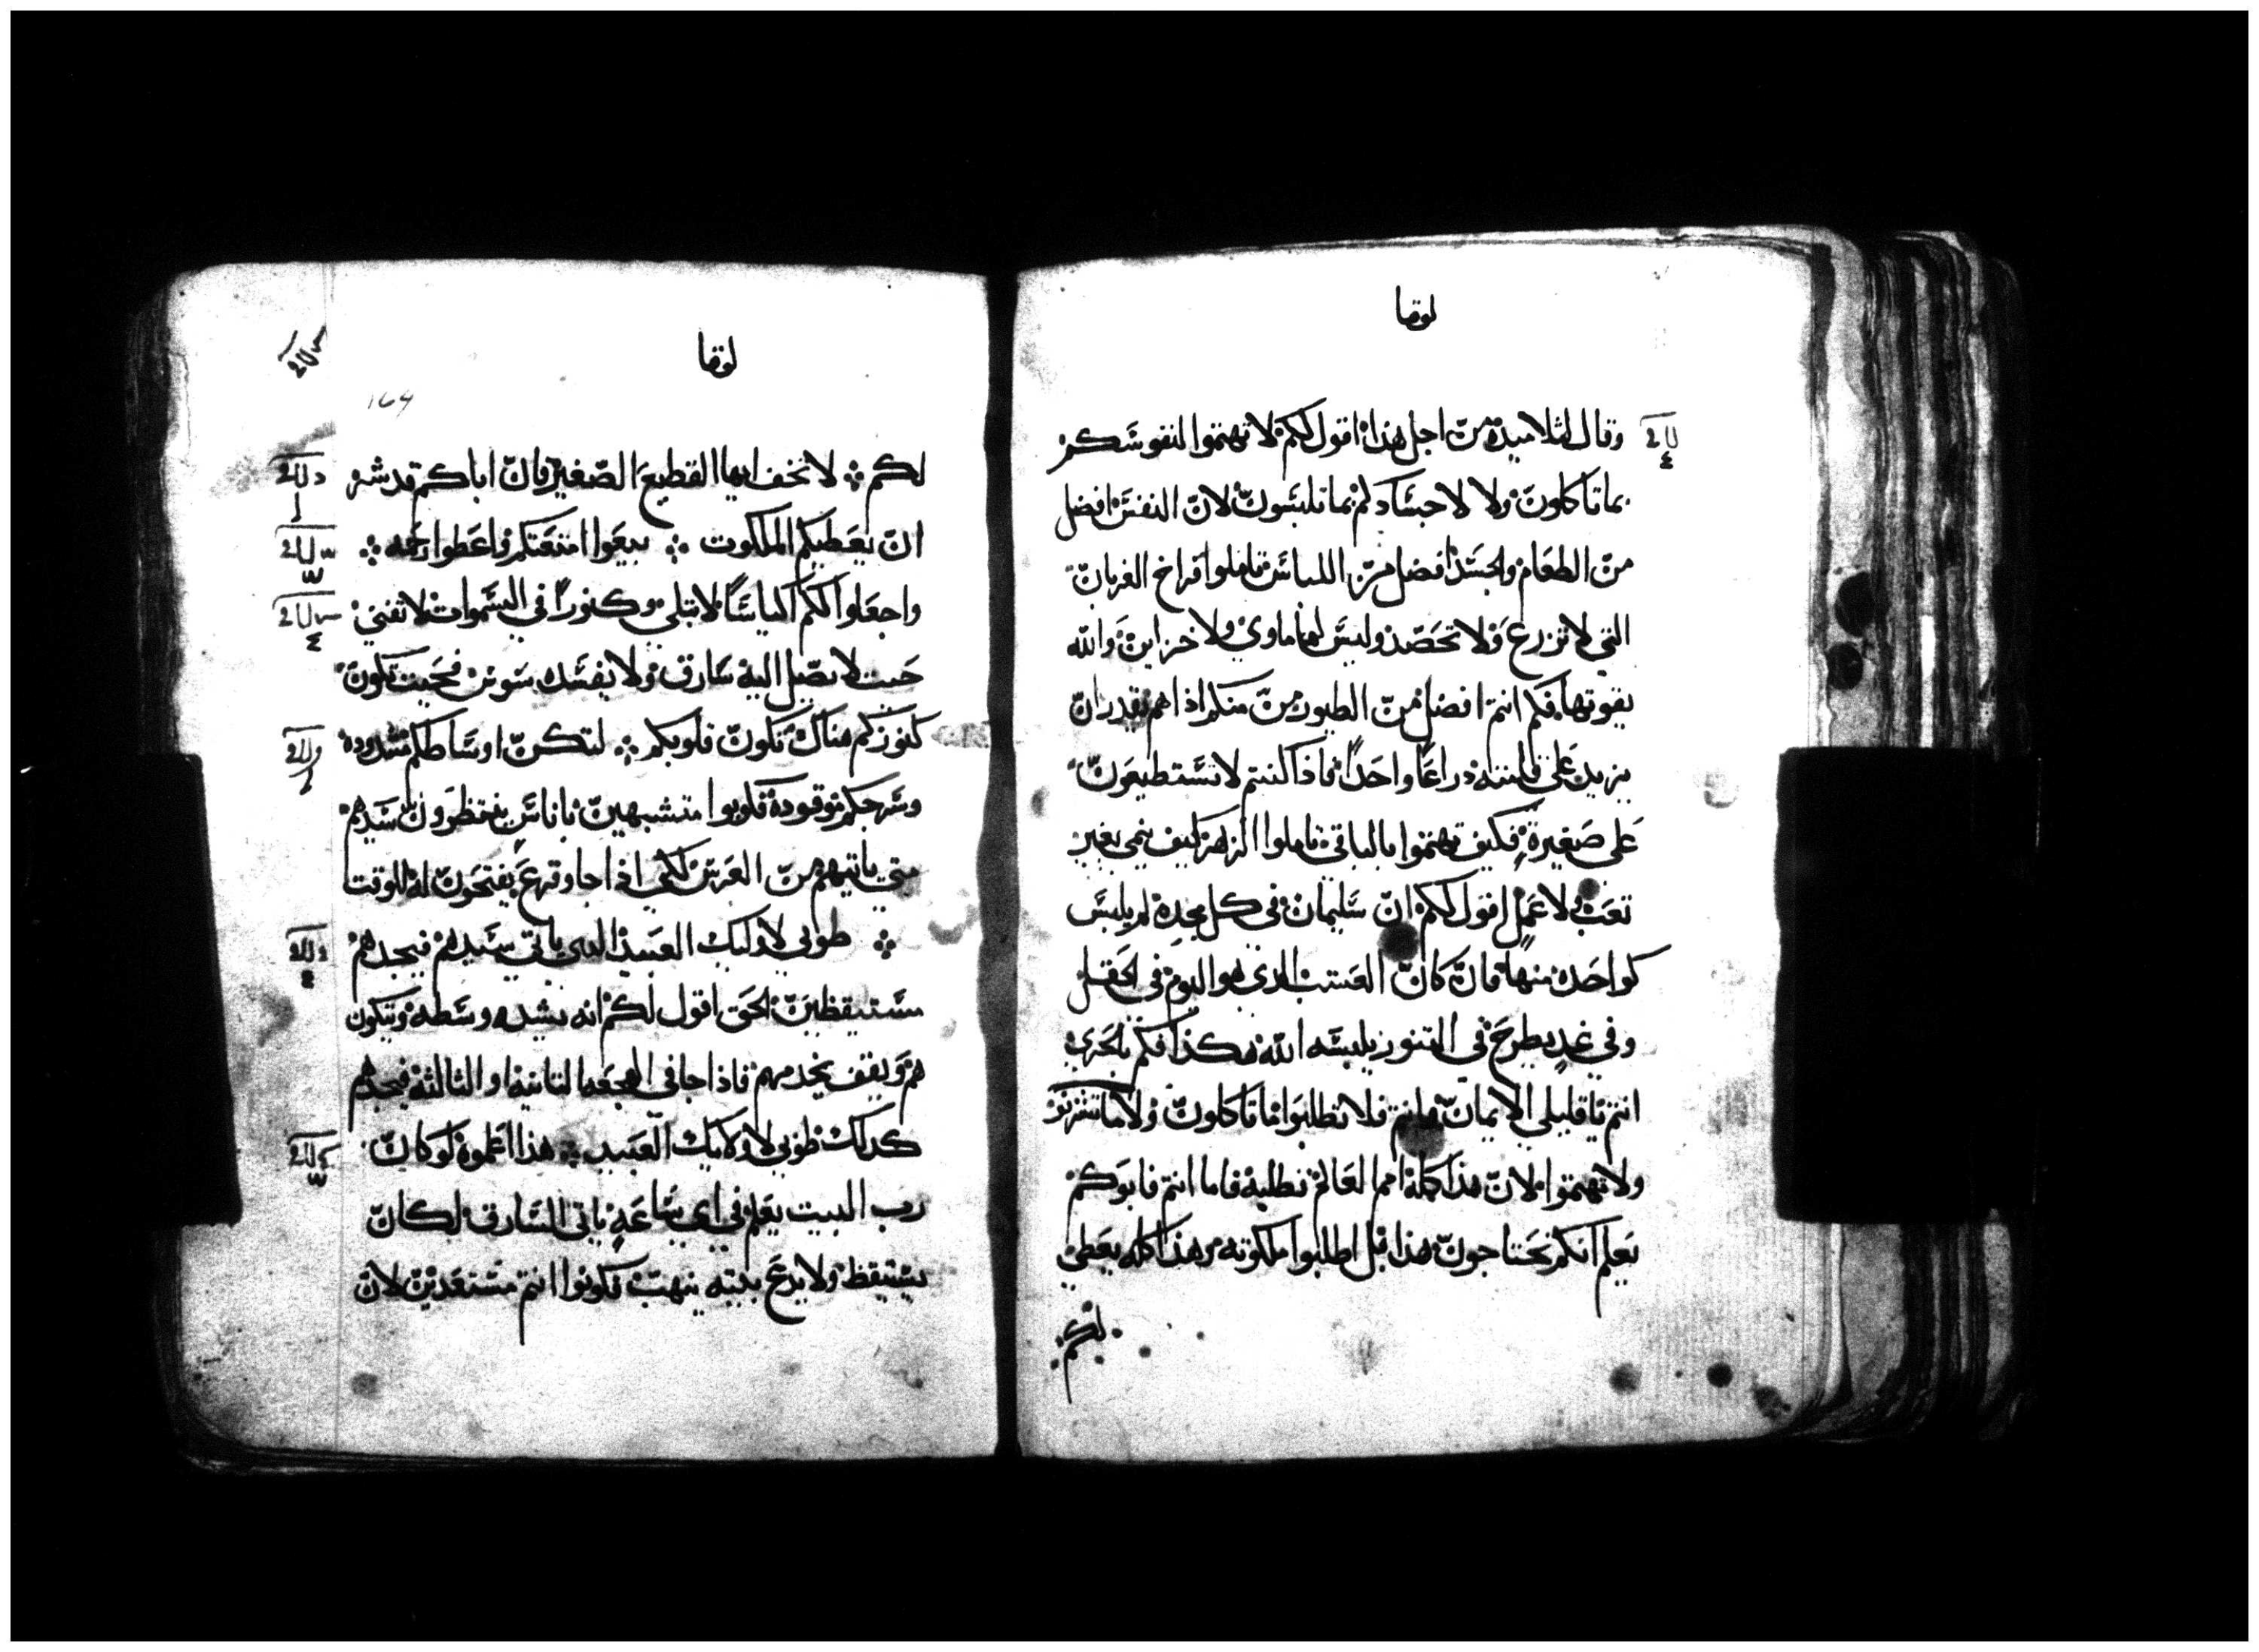 لوقا
وقال لتلاميذه من اجل هذا اقول لكم لا تهتموا لنفوسكم
بما تاكلون ولا لاجسادكم بما تلبسون لان النفس افضل
من الطعام والجسد افضل من اللباس تاملوا فراخ الغربان
التي لا تزرع ولا تحصد وليس لها ماوي ولا خزاين والله
يقوتها فكم انتم افضل من الطيور من منكم اذا هم يقدر ان
يزيد علي قامته دراعا واحدا فاذا كنتم لا تستطيعون
علي صغيرة فكيف تهتموا بالباقي تاملوا الزهر كيف ينمي بغير
تعب ولا عمل اقول لكم ان سليمان في كل مجده لم يلبس
كواحده منها فان كان العشب الدي هو اليوم في الحقل
وفي غد يطرح في التنور يلبسه الله هكذا فكم بالحري
انتم يا قليلي الايمان فلا تطلبوا ما تاكلون ولا ما تشربون
ولا تهتموا لان هذا كله امم العالم تطلبه فاما انتم فابوكم
يعلم انكم تحتاجون هذا بل اطلبوا ملكوته وهذا كله يعطي
لكم
لوقا
164
لكم لا تخف ايها القطيع الصغير فان اباكم قد شر
ان يعطيكم الملكوت بيعوا امتعتكم واعطوا رحمه
واجعلوا لكم اكياسا لا تبلي وكنورا في السموات لا تفني
حيت لا يصل اليه سارق ولا يفسده سوس فحيت تكون
كنوزكم هناك تكون قلوبكم لتكن اوساطكم مشدوده
وسرجكم موقوده فكونوا متشبهين باناس ينتظرون سيدهم
متي ياتيهم من العرس لكي اذا جا وقرع يفتحون له للوقت
طوبي لاوليك العبيد الدي ياتي سيدهم فيجدهم
مستيقظين الحق اقول لكم انه يشد وسطه ويتكون
هم ويقف يخدمهم فاذا جا في الهجعه التانيه او التالته فيجدهم
كدلك طوبي لاولايك العبيد هذا اعلموه لو كان
رب البيت يعلم في اي ساعه ياتي السارق لكان
يستيقظ ولا يدع بيته ينهب فكونوا انتم مستعدين لان